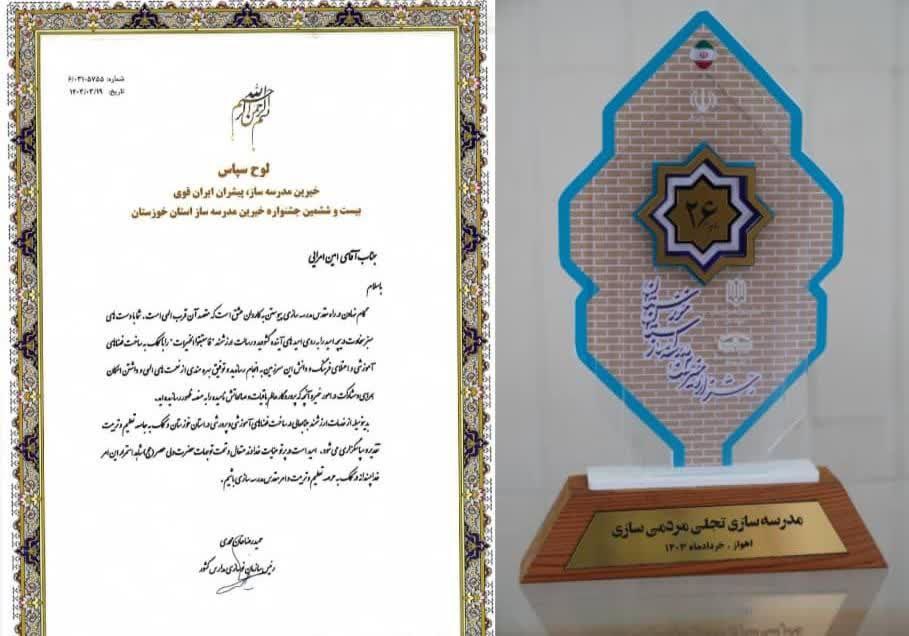 شماره: ۶/۰۳۱۰۵۷۵۵
تاریخ: ۱۴۰۳/۰۳/۱۹
بسم الله الرحمن الرحیم
لوح سپاس
خیرین مدرسه ساز، پیشران ایران قوی
بیست و ششمین جشنواره خیرین مدرسه ساز استان خوزستان
جناب آقای امین امرایی
باسلام
گام نهادن در راه مقدس مدرسه سازی پیوستن به کاروان عشق است که مقصد آن قرب الهی است. شما با دست های
سبز سخاوت دریچه امید را به روی امیدهای آینده گشودید و رسالت ارزشمند "فاستبقوا الخیرات" را با کمک به ساخت فضاهای
آموزشی و اعتلای فرهنگ و دانش این سرزمین به انجام رسانید و توفیق بهره مندی از نعمت های الهی و داشتن امکان
همراهی و مشارکت در امور خیر و آنچه که پروردگار عالم باقیات و صالحاتش نامیده را به منصه ظهور رسانیده اید.
بدینوسیله از خدمات ارزشمند جنابعالی در ساخت فضاهای آموزشی و پرورشی در استان خوزستان و کمک به جامعه تعلیم و تربیت
تقدیر و سپاسگزاری می شود. امید است در پرتو عنایات خداوند متعال و تحت توجهات حضرت ولی عصر (عج) شاهد استمرار این امر
خداپسندانه در کمک به عرصه تعلیم و تربیت و امر مقدس مدرسه سازی باشیم.
حمیدرضا خان محمدی
رئیس سازمان نوسازی مدارس کشور
۲۶
مدرسه سازی تجلی مردمی سازی
اهواز . خردادماه ۱۴۰۳